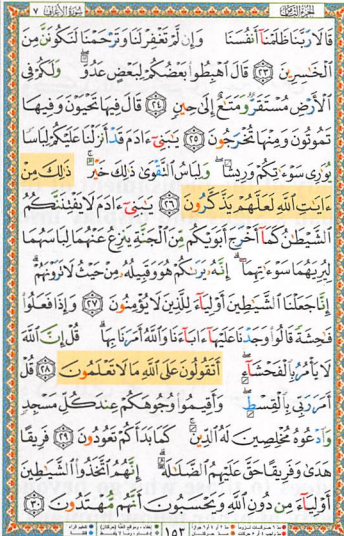 الجزء الثامن
سورة الأعراف ٧
قَالَا رَبَّنَا ظَلَمْنَآ أَنفُسَنَا وَإِن لَّمْ تَغْفِرْ لَنَا وَتَرْحَمْنَا لَنَكُونَنَّ مِنَ
ٱلْخَٰسِرِينَ ﴿٢٣﴾ قَالَ ٱهْبِطُوا۟ بَعْضُكُمْ لِبَعْضٍ عَدُوٌّ ۖ وَلَكُمْ فِى
ٱلْأَرْضِ مُسْتَقَرٌّ وَمَتَٰعٌ إِلَىٰ حِينٍ ﴿٢٤﴾ قَالَ فِيهَا تَحْيَوْنَ وَفِيهَا
تَمُوتُونَ وَمِنْهَا تُخْرَجُونَ ﴿٢٥﴾ يَٰبَنِىٓ ءَادَمَ قَدْ أَنزَلْنَا عَلَيْكُمْ لِبَاسًا
يُوَٰرِى سَوْءَٰتِكُمْ وَرِيشًا ۖ وَلِبَاسُ ٱلتَّقْوَىٰ ذَٰلِكَ خَيْرٌ ۚ ذَٰلِكَ مِنْ
ءَايَٰتِ ٱللَّهِ لَعَلَّهُمْ يَذَّكَّرُونَ ﴿٢٦﴾ يَٰبَنِىٓ ءَادَمَ لَا يَفْتِنَنَّكُمُ
ٱلشَّيْطَٰنُ كَمَآ أَخْرَجَ أَبَوَيْكُم مِّنَ ٱلْجَنَّةِ يَنزِعُ عَنْهُمَا لِبَاسَهُمَا
لِيُرِيَهُمَا سَوْءَٰتِهِمَآ ۗ إِنَّهُۥ يَرَىٰكُمْ هُوَ وَقَبِيلُهُۥ مِنْ حَيْثُ لَا تَرَوْنَهُمْ ۗ
إِنَّا جَعَلْنَا ٱلشَّيَٰطِينَ أَوْلِيَآءَ لِلَّذِينَ لَا يُؤْمِنُونَ ﴿٢٧﴾ وَإِذَا فَعَلُوا۟
فَٰحِشَةً قَالُوا۟ وَجَدْنَا عَلَيْهَآ ءَابَآءَنَا وَٱللَّهُ أَمَرَنَا بِهَا ۗ قُلْ إِنَّ ٱللَّهَ
لَا يَأْمُرُ بِٱلْفَحْشَآءِ ۖ أَتَقُولُونَ عَلَى ٱللَّهِ مَا لَا تَعْلَمُونَ ﴿٢٨﴾ قُلْ
أَمَرَ رَبِّى بِٱلْقِسْطِ ۖ وَأَقِيمُوا۟ وُجُوهَكُمْ عِندَ كُلِّ مَسْجِدٍ
وَٱدْعُوهُ مُخْلِصِينَ لَهُ ٱلدِّينَ ۚ كَمَا بَدَأَكُمْ تَعُودُونَ ﴿٢٩﴾ فَرِيقًا
هَدَىٰ وَفَرِيقًا حَقَّ عَلَيْهِمُ ٱلضَّلَٰلَةُ ۗ إِنَّهُمُ ٱتَّخَذُوا۟ ٱلشَّيَٰطِينَ
أَوْلِيَآءَ مِن دُونِ ٱللَّهِ وَيَحْسَبُونَ أَنَّهُم مُّهْتَدُونَ ﴿٣٠﴾
١٥٣